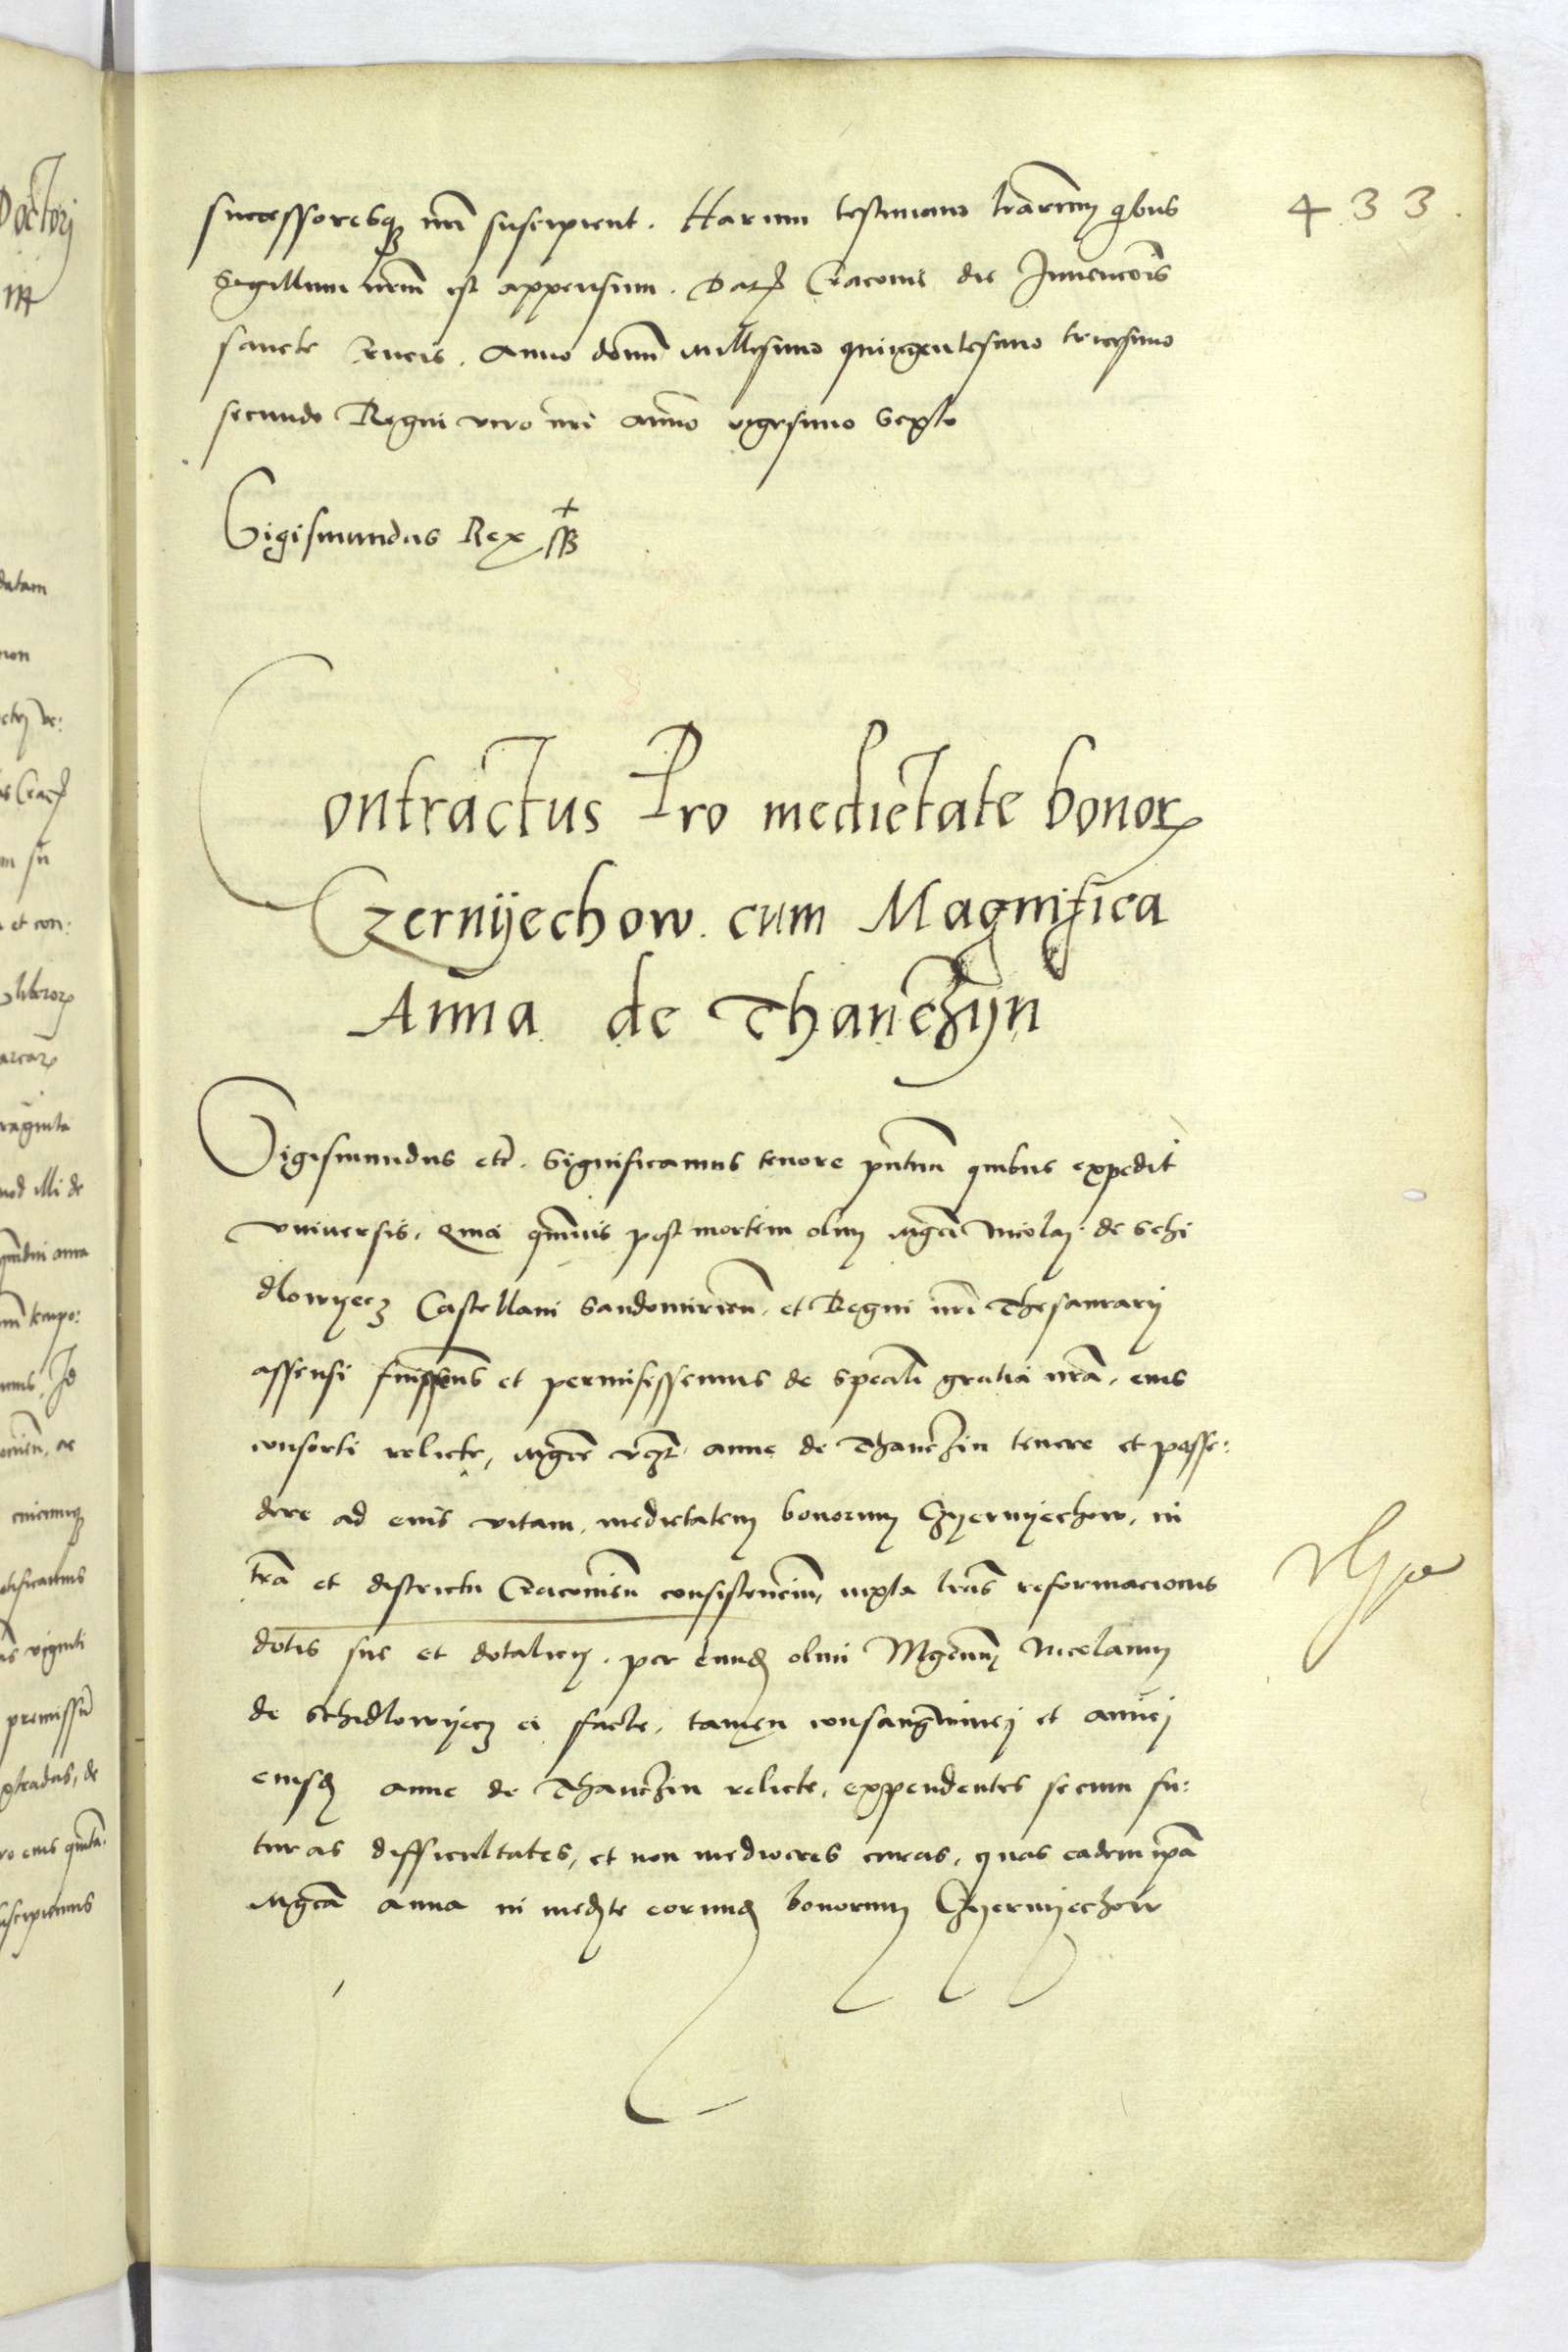 433.
successoresq3 nri suscipient. Harum testimonio lrarum qibus
Sigillum nrum est appensum. Datum Cracovie die Invencois
sancte Crucis. Anno domi millesimo quingentesimo tricesimo
secundo Regni vero nri anno vigesimo sexto
Sigismundus Rex sst
Contractus Pro medietate bonorum
Czernyechow. cum Magnifica
Anna de Thanczyn
Sigismundus etc. Significamus tenore pntium quibus expedit
universis. Quia quamvis post mortem olim Mgci Nicolai de Schi
dlowyecz Castellani Sandomirien. et Regni nri Thesaurarij
assensi fuissemus et permisissemus de speciali gratia nra, eius
consorti relicte, Mgce Anne de Thanczin tenere et posse:
dere ad eius vitam, medietatem bonorum Czyernyechow, in
tra et districtu Cracovien consistencium, iuxta lras reformacionis
dotis sue et dotalicij. per eundem olim Mgcum Nicolaum
de Schidlowyecz ei facte, tamen consanguinei et amici
eiusdem Anne de Thanczin relicte, expendentes secum fu:
turas difficultates, et non mediocres curas, quas eadem ipsa
Mgca Anna in medte eorundem bonorum Czyernyechow